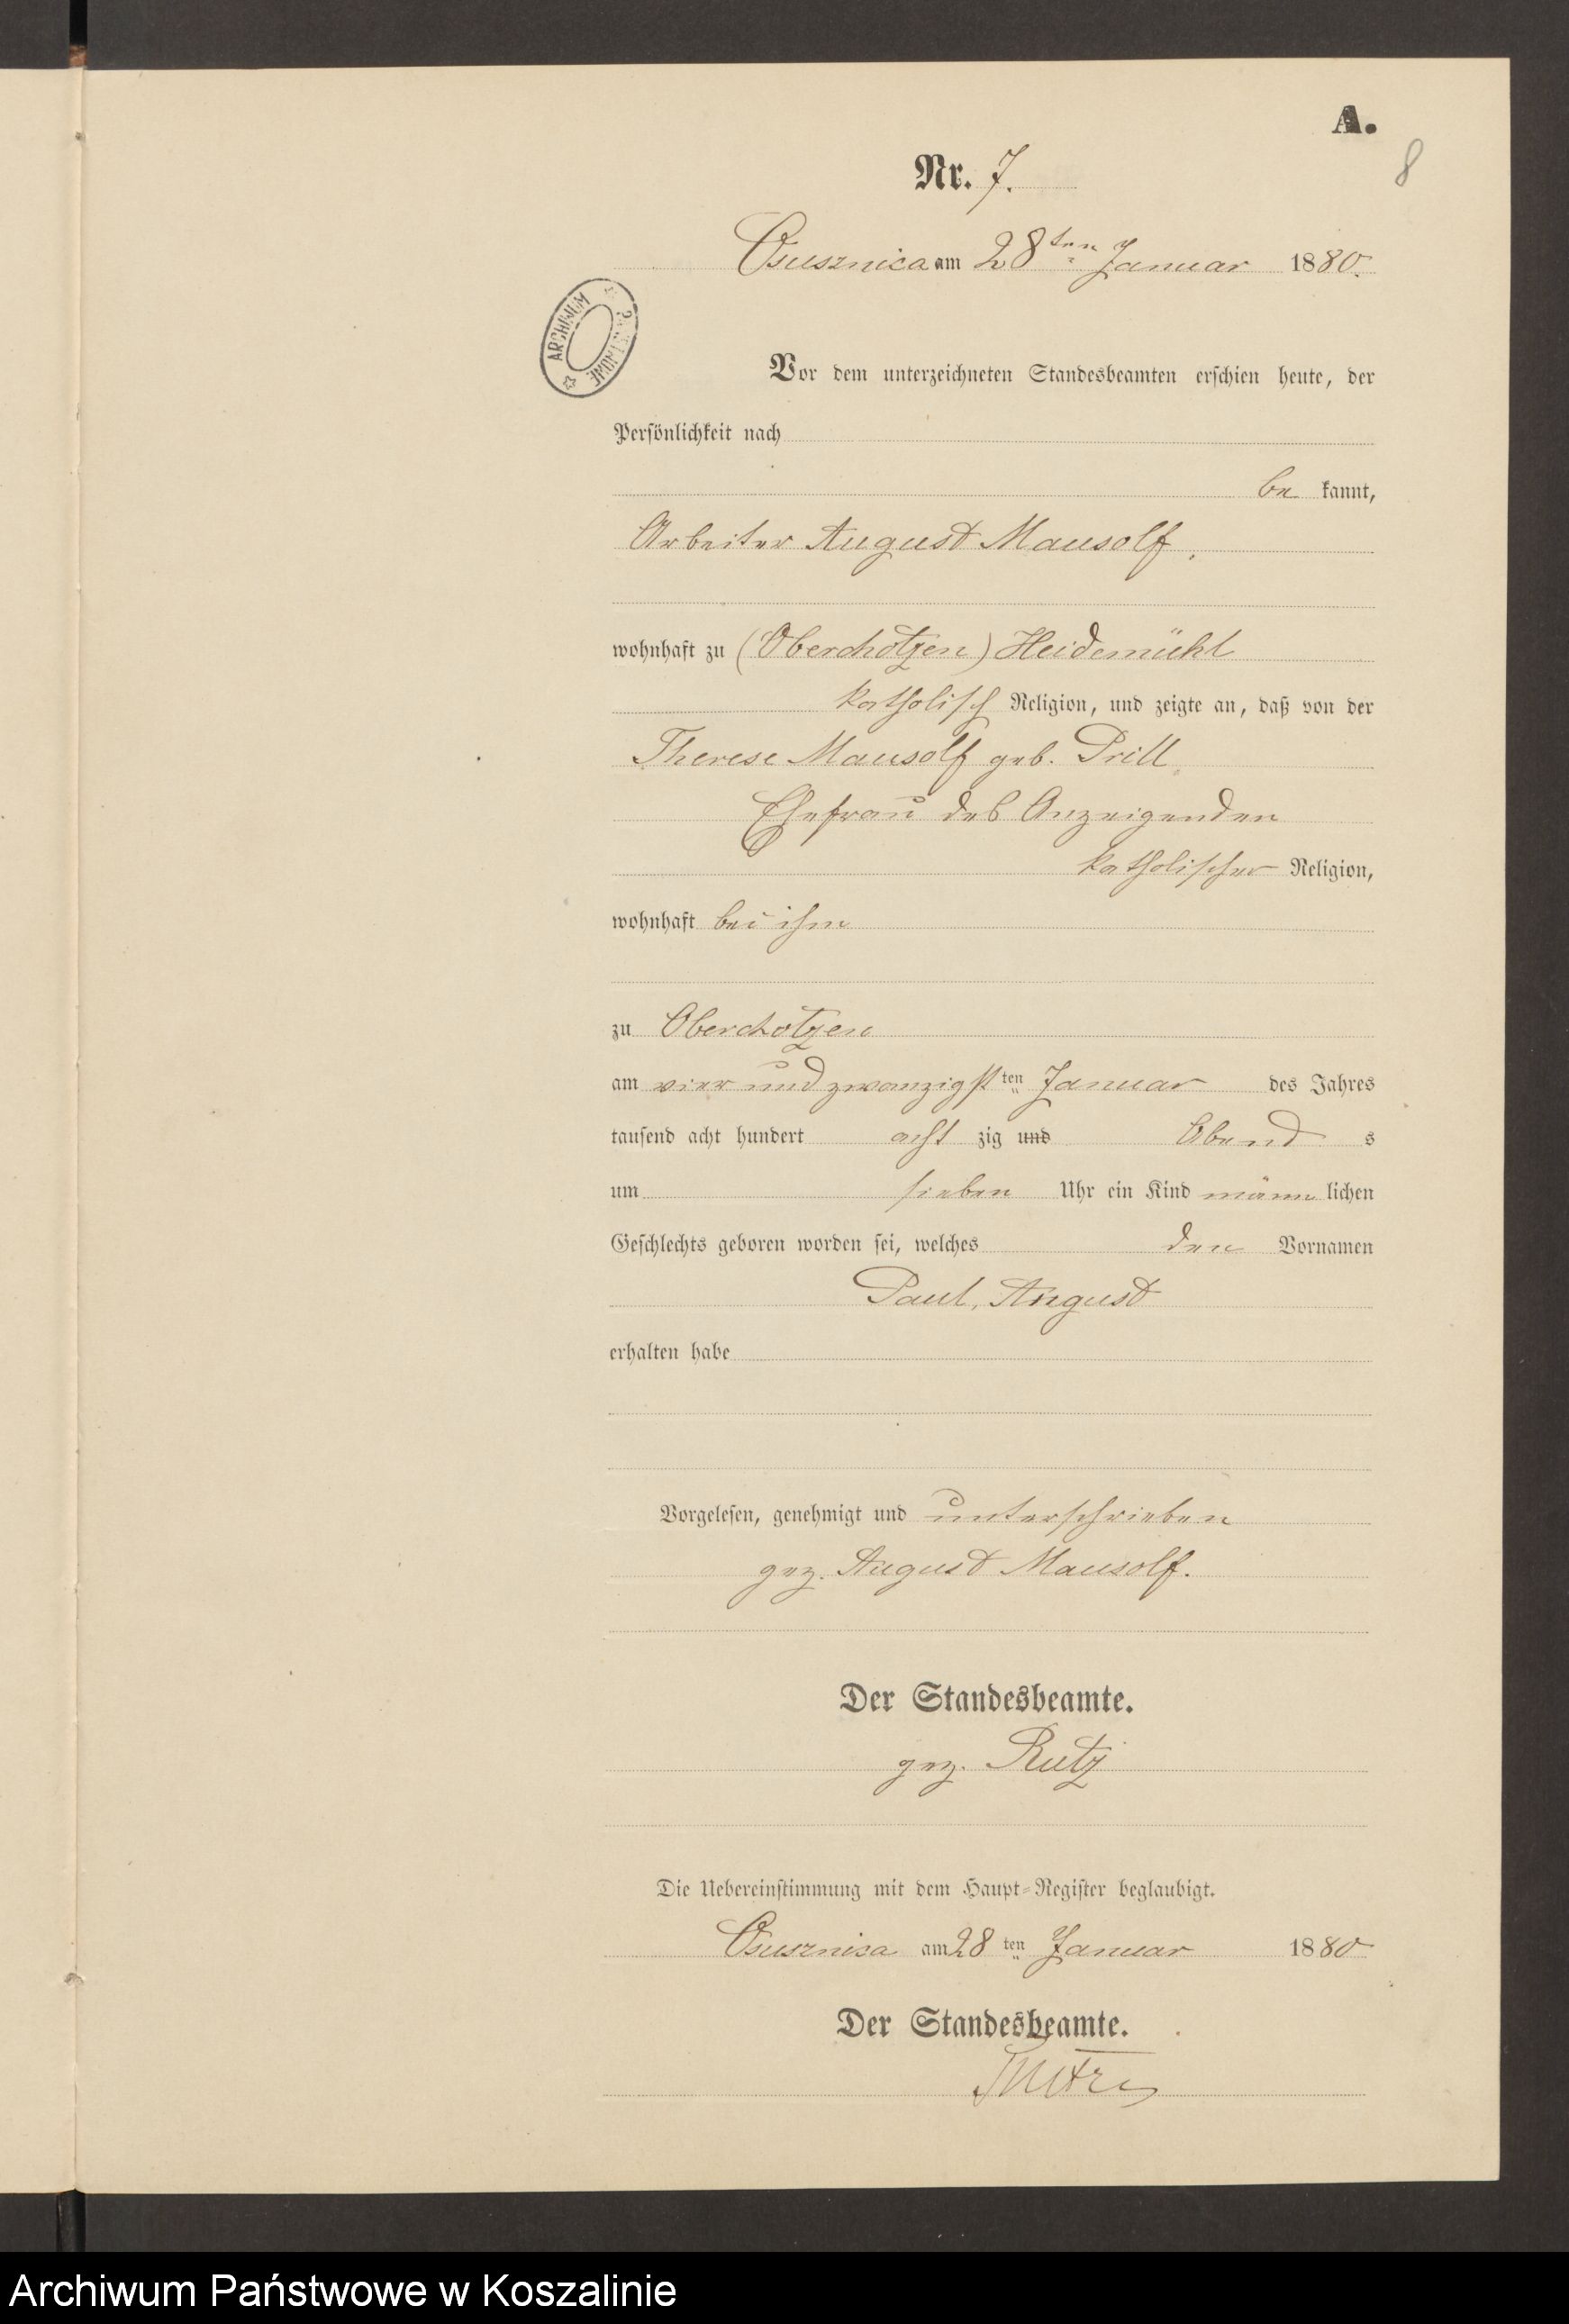 A.
8
Nr. 7.
Osusznica am 28ten Januar 1880.
ARCHIWUM
Vor dem unterzeichneten Standesbeamten erschien heute, der
Persönlichkeit nach
be kannt,
Arbeiter August Mausolf,
wohnhaft zu (Oberchotzen) Heidemühl
katholisch Religion, und zeigte an, daß von der
Therese Mausolf geb. Prill
Ehefrau des Anzeigenden
katholischer Religion,
wohnhaft bei ihm
zu Oberchotzen
am vier und zwanzigst ten Januar des Jahres
tausend acht hundert acht zig und Abend s
um sieben Uhr ein Kind männ lichen
Geschlechts geboren worden sei, welches den Vornamen
Paul, August
erhalten habe
Vorgelesen, genehmigt und unterschrieben
gez. August Mausolf.
Der Standesbeamte.
gez. Rutz
Die Uebereinstimmung mit dem Haupt-Register beglaubigt.
Osusznica am 28 ten Januar 1880
Der Standesbeamte.
Archiwum Państwowe w Koszalinie